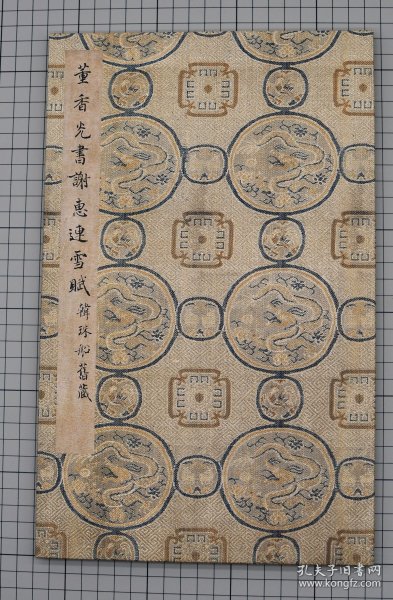 董香光書謝惠連雪賦 韓珠船舊藏
孔夫子旧书网
www.kongfz.com